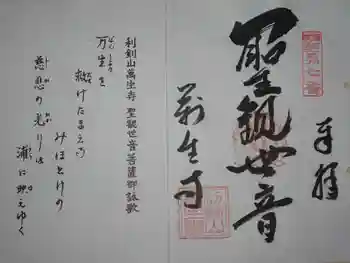 奉拝
聖観世音
萬生寺
利剣山萬生寺 聖観世音菩薩御詠歌
万生を
救けたまえる
みほとけの
慈悲の光りは
浦に映えゆく